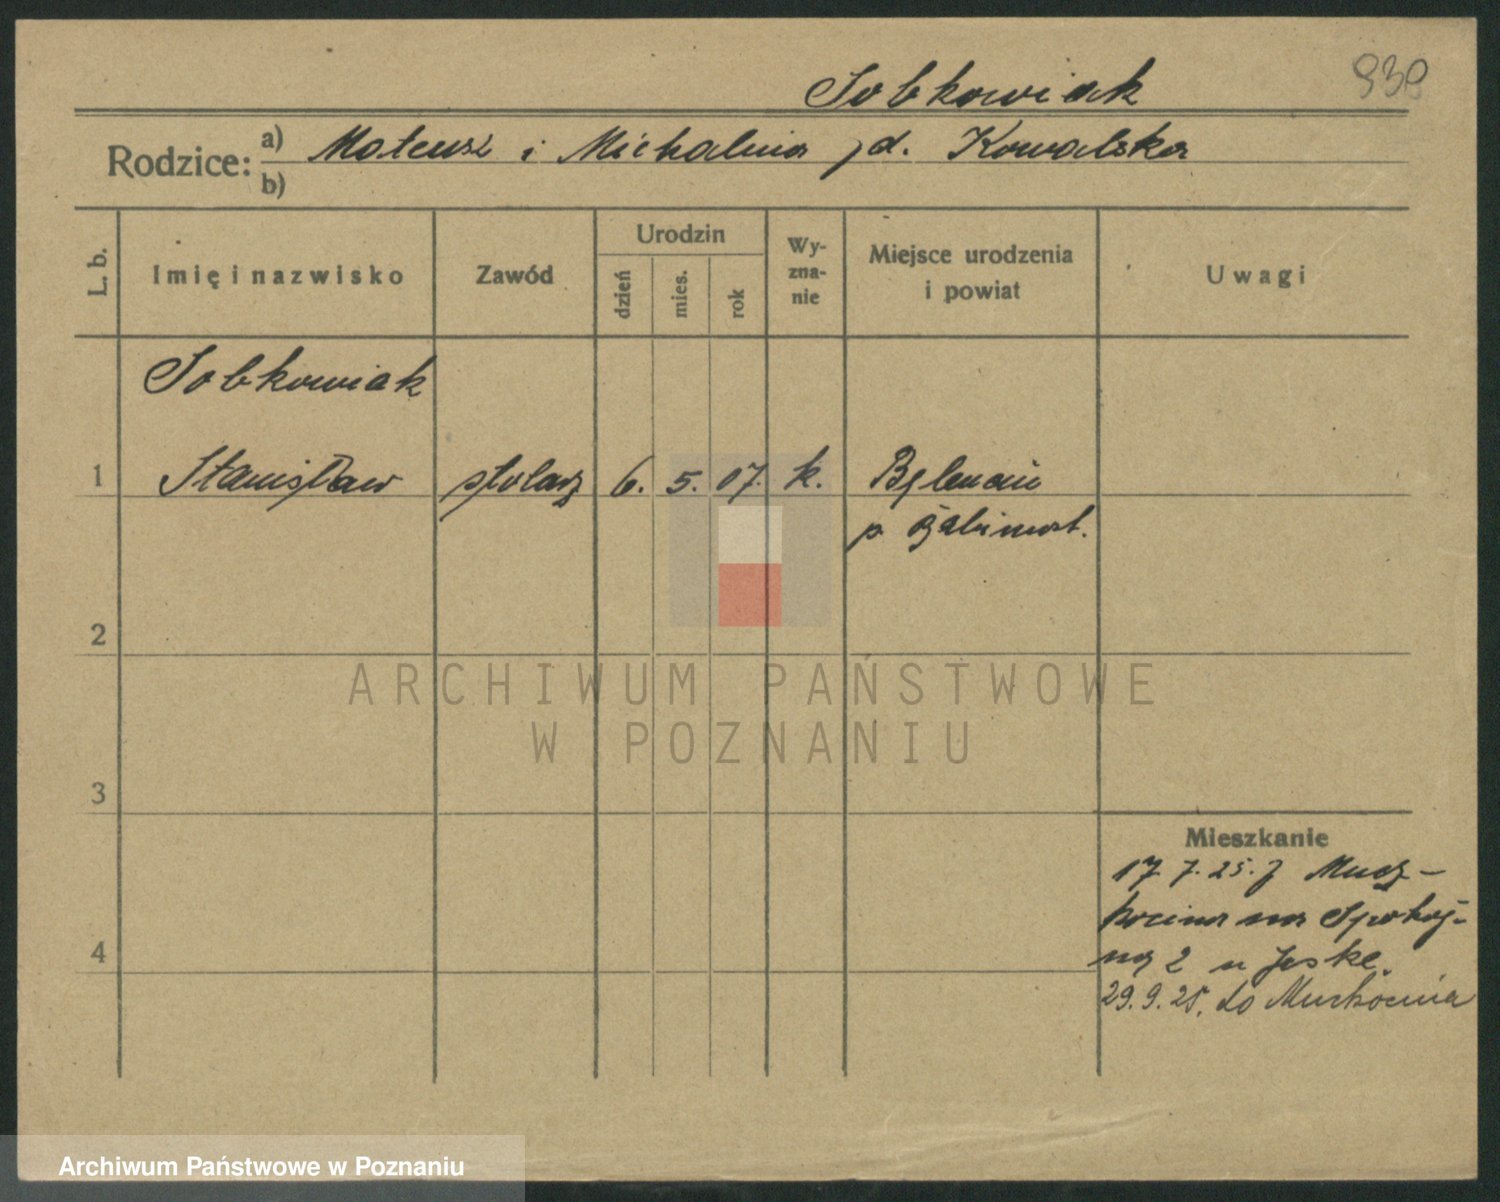 Sobkowiak
939
Rodzice: a) Mateusz i Michalina zd. Kowalska
b)
L. b.
Imię i nazwisko
Zawód
Urodzin
dzień
mies.
rok
Wy-
zna-
nie
Miejsce urodzenia
i powiat
Uwagi
Sobkowiak
1 Stanisław stolarz 6. 5. 07. k.
p.
2
3
4
Mieszkanie
17. 7. 25. z Mucz-
kocina na Spokoj-
na 2 u Jeske.
29. 9. 25. do Muchocina
ARCHIWUM PAŃSTWOWE
W POZNANIU
Archiwum Państwowe w Poznaniu